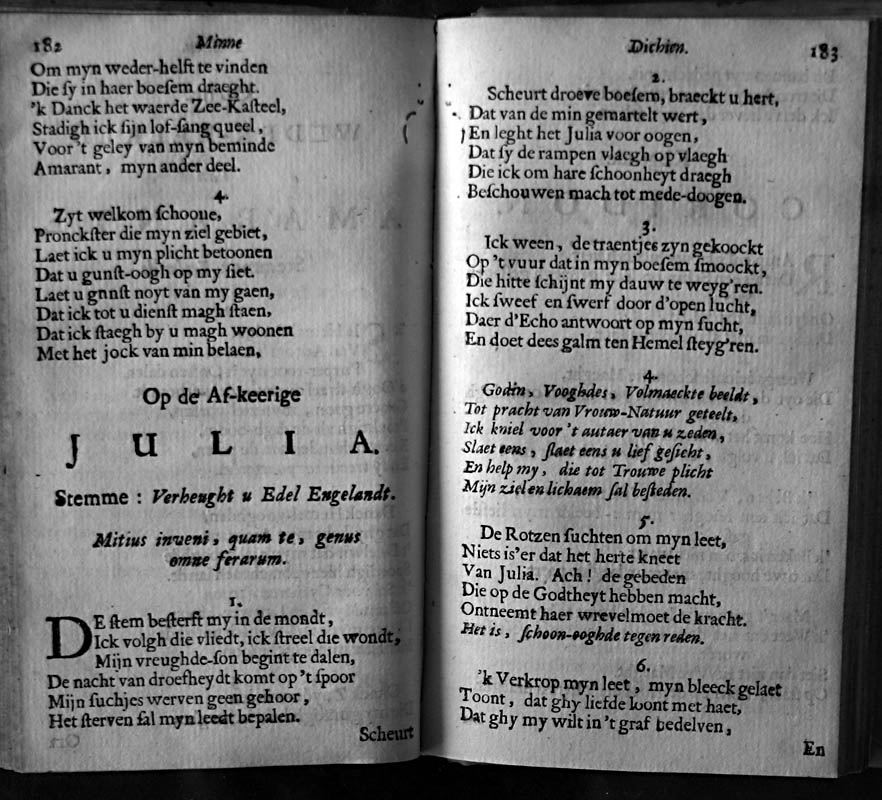 182 Minne
Om myn weder-helft te vinden
Die ſy in haer boeſem draeght.
'k Danck het waerde Zee-Kaſteel,
Stadigh ick ſijn lof-ſang queel,
Voor 't geley van myn beminde
Amarant, myn ander deel.
4.
Zyt welkom ſchooue,
Pronckſter die myn ziel gebiet,
Laet ick u myn plicht betoonen
Dat u gunſt-oogh op my ſiet.
Laet u gnnſt noyt van my gaen,
Dat ick tot u dienſt magh ſtaen,
Dat ick ſtaegh by u magh woonen
Met het jock van min belaen,
Op de Af-keerige
JULIA.
Stemme : Verheught u Edel Engelandt.
Mitius inveni, quam te, genus
omne ferarum.
1.
DE ſtem beſterft my in de mondt,
Ick volgh die vliedt, ick ſtreel die wondt,
Mijn vreughde-ſon begint te dalen,
De nacht van droefheydt komt op 't ſpoor
Mijn ſuchjes werven geen gehoor,
Het ſterven ſal myn leedt bepalen.
Scheurt
Dichien. 183
2.
Scheurt droeve boeſem, braeckt u hert,
Dat van de min gemartelt wert,
En leght het Julia voor oogen,
Dat ſy de rampen vlaegh op vlaegh
Die ick om hare ſchoonheyt draegh
Beſchouwen mach tot mede-doogen.
3.
Ick ween, de traentjes zyn gekoockt
Op 't vuur dat in myn boeſem ſmoockt,
Die hitte ſchijnt my dauw te weyg'ren.
Ick ſweef en ſwerf door d'open lucht,
Daer d'Echo antwoort op myn ſucht,
En doet dees galm ten Hemel ſteyg'ren.
4.
Godin, Vooghdes, Volmaeckte beeldt,
Tot pracht van Vrouw-Natuur geteelt,
Ick kniel voor 't autaer van u zeden,
Slaet eens, ſlaet eens u lief geſicht,
En help my, die tot Trouwe plicht
Mijn ziel en lichaem ſal beſteden.
5.
De Rotzen ſuchten om myn leet,
Niets is'er dat het herte kneet
Van Julia. Ach! de gebeden
Die op de Godtheyt hebben macht,
Ontneemt haer wrevelmoet de kracht.
Het is, ſchoon-ooghde tegen reden.
6.
'k Verkrop myn leet, myn bleeck gelaet
Toont, dat ghy liefde loont met haet,
Dat ghy my wilt in 't graf bedelven,
En